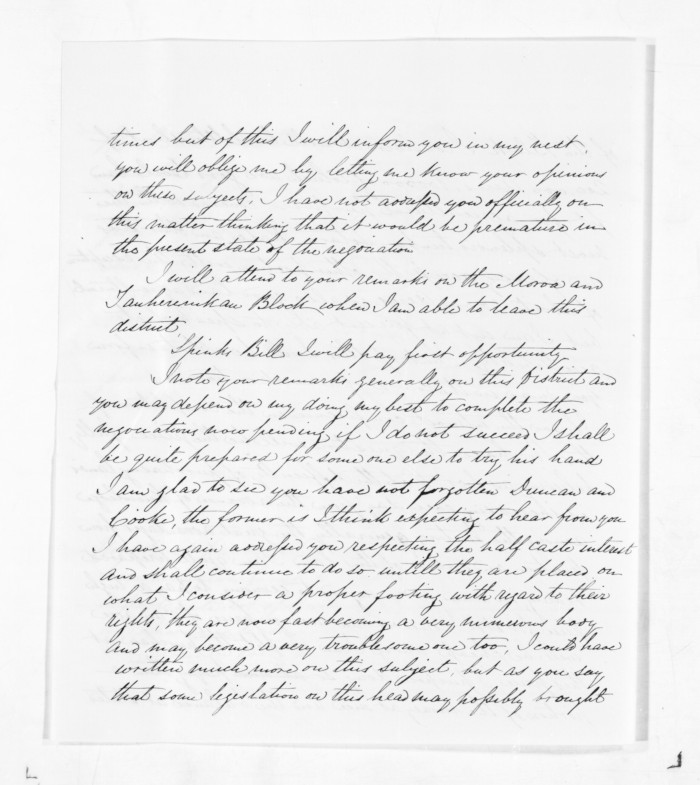 times but of this I will inform you in my next,
you will oblige me by letting me know your opinions
on these subjects, I have not addressed you officially on
this matter thinking that it would be premature in
the present state of the negociation
I will attend to your remarks on the Moroa and
Tauherinikau Block when I am able to leave this
district
Spinks Bill I will pay first opportunity
I note your remarks generally on this District and
you may depend on my doing my best to complete the
negociations now pending, if I do not succeed I shall
be quite prepared for some one else to try his hand
I am glad to see you have not forgotten Duncan and
Cooke, the former is I think expecting to hear from you
I have again addressed you respecting the half caste interest
and shall continue to do so untill they are placed on
what I consider a proper footing with regard to their
rights, they are now fast becoming a very numerous body
and may become a very troublesome one too, I could have
written much more on this subject, but as you say
that some legislation on this head may possibly brought